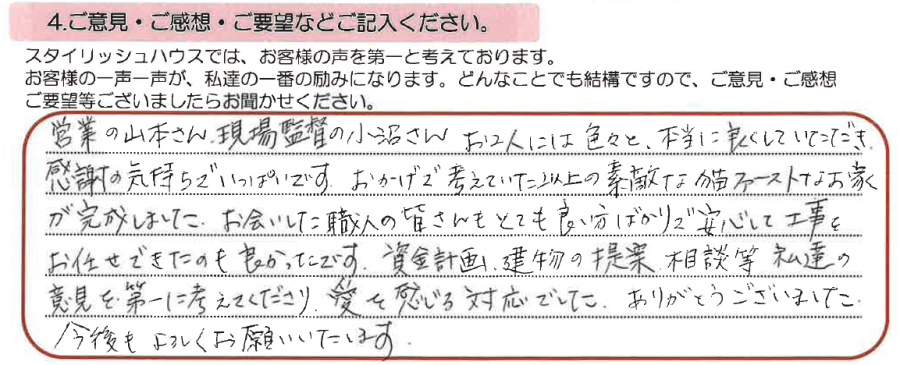 4.ご意見・ご感想・ご要望などご記入ください。
スタイリッシュハウスでは、お客様の声を第一と考えております。
お客様の一声一声が、私達の一番の励みになります。どんなことでも結構ですので、ご意見・ご感想
ご要望等ございましたらお聞かせください。
営業の山本さん、現場監督の小沼さん お2人には色々と、本当に良くしていただき、
感謝の気持ちでいっぱいです。おかげで考えていた以上の素敵な猫ファーストなお家
が完成しました。お会いした職人の皆さんもとても良い方ばかりで安心して工事を
お任せできたのも良かったです。資金計画、建物の提案、相談等 私達の
意見を第一に考えてくださり、愛を感じる対応でした。ありがとうございました。
今後もよろしくお願いいたします。